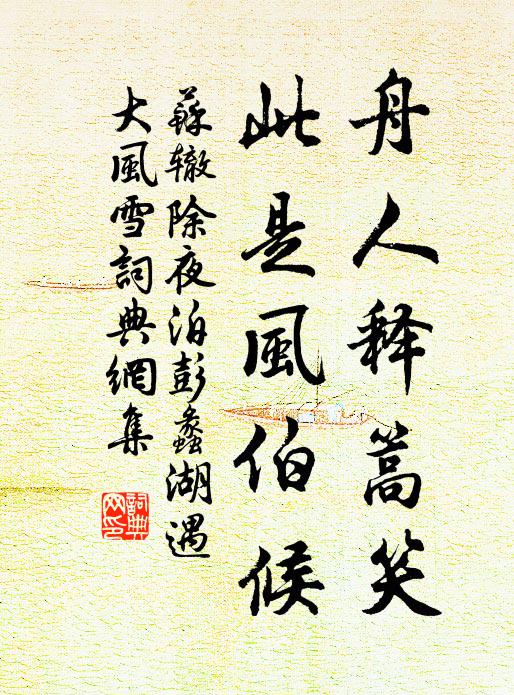 舟人释蒿笑
此是風伯候
蘇辙除夜泊彭蠡湖遇
大風雪詞典網集
詞典網印